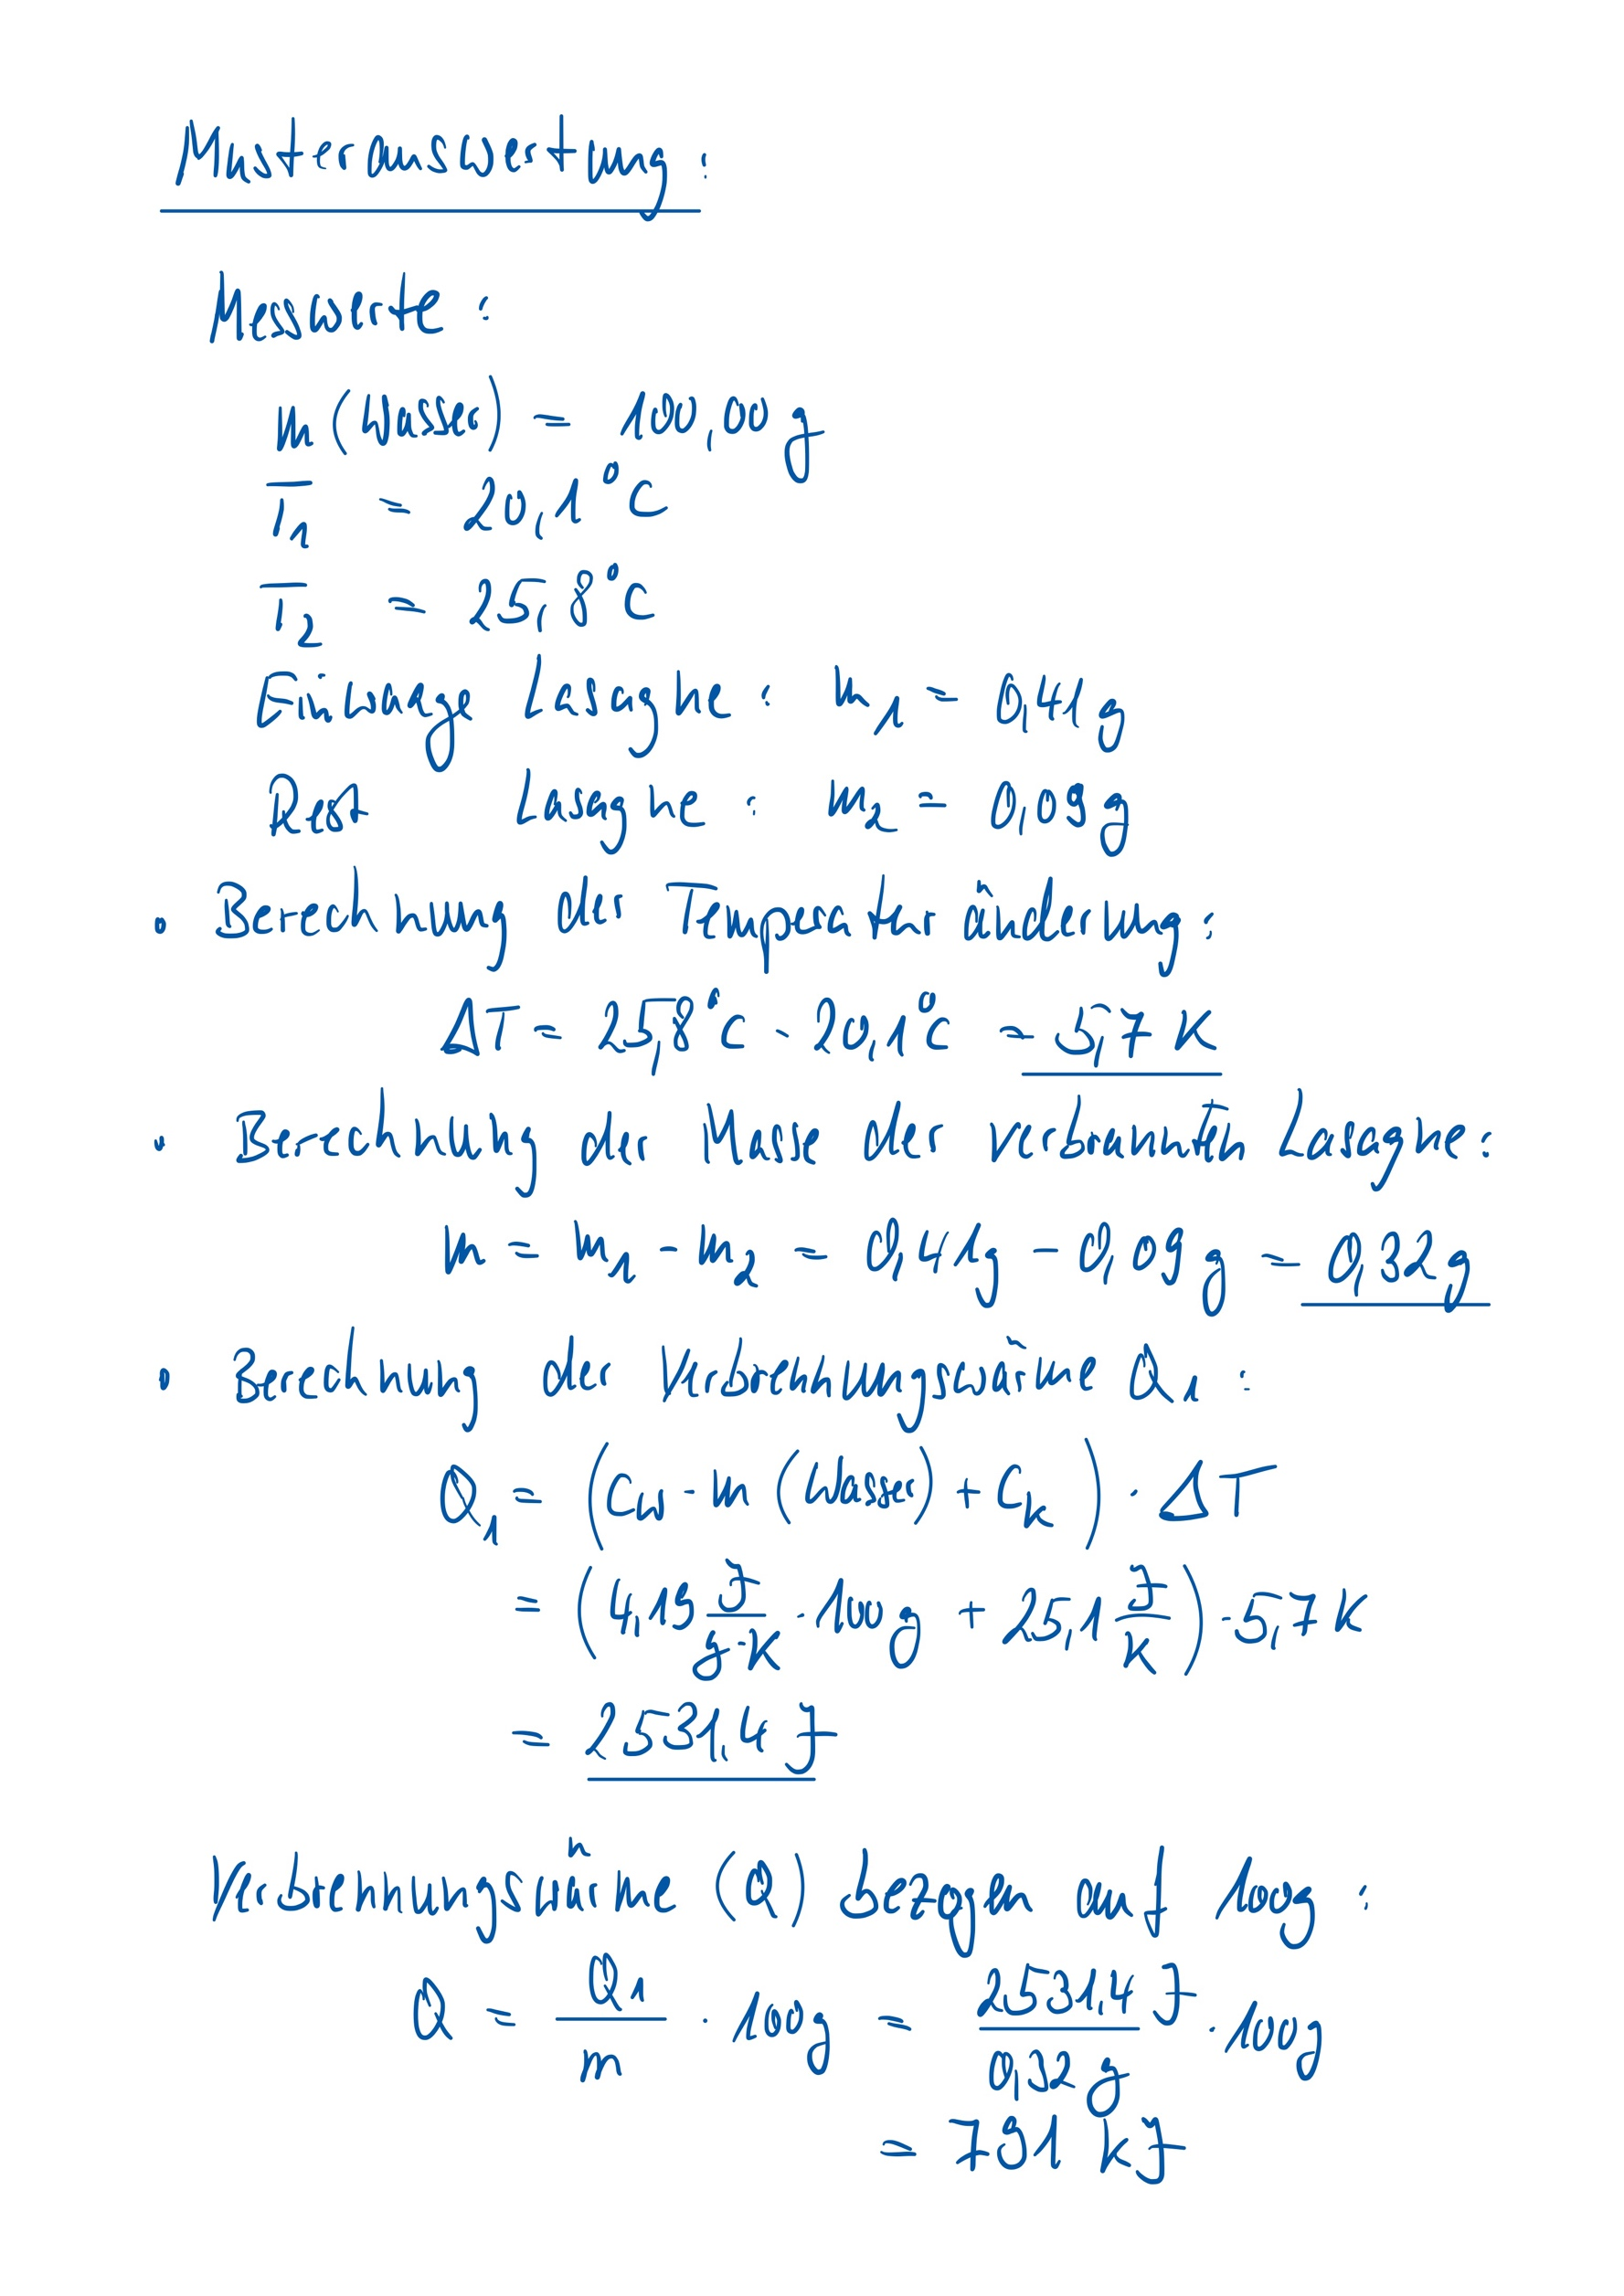 Musterauswertung:
Messwerte:
m (Wasser) = 100,00 g
T₁ = 20,1 °C
T₂ = 25,8 °C
Einwaage Lasagne: m₁ = 0,41 g
Rest Lasagne: m₂ = 0,09 g
• Berechnung der Temperaturänderung:
ΔT = 25,8 °C - 20,1 °C = 5,7 K
• Berechnung der Masse der verbrannten Lasagne:
m = m₁ - m₂ = 0,41 g - 0,09 g = 0,32 g
• Berechnung der Verbrennungswärme Q₁:
Q₁ = (cw · m (Wasser) + Ck) · ΔT
= (4,19 J/g·K · 100 g + 25,1 J/K) · 5,7 K
= 2531,4 J
Verbrennungswärme (Q) bezogen auf 100 g:
Q = Q₁/m · 100 g = 2531,4 J/0,32 g · 100 g
= 791 kJ